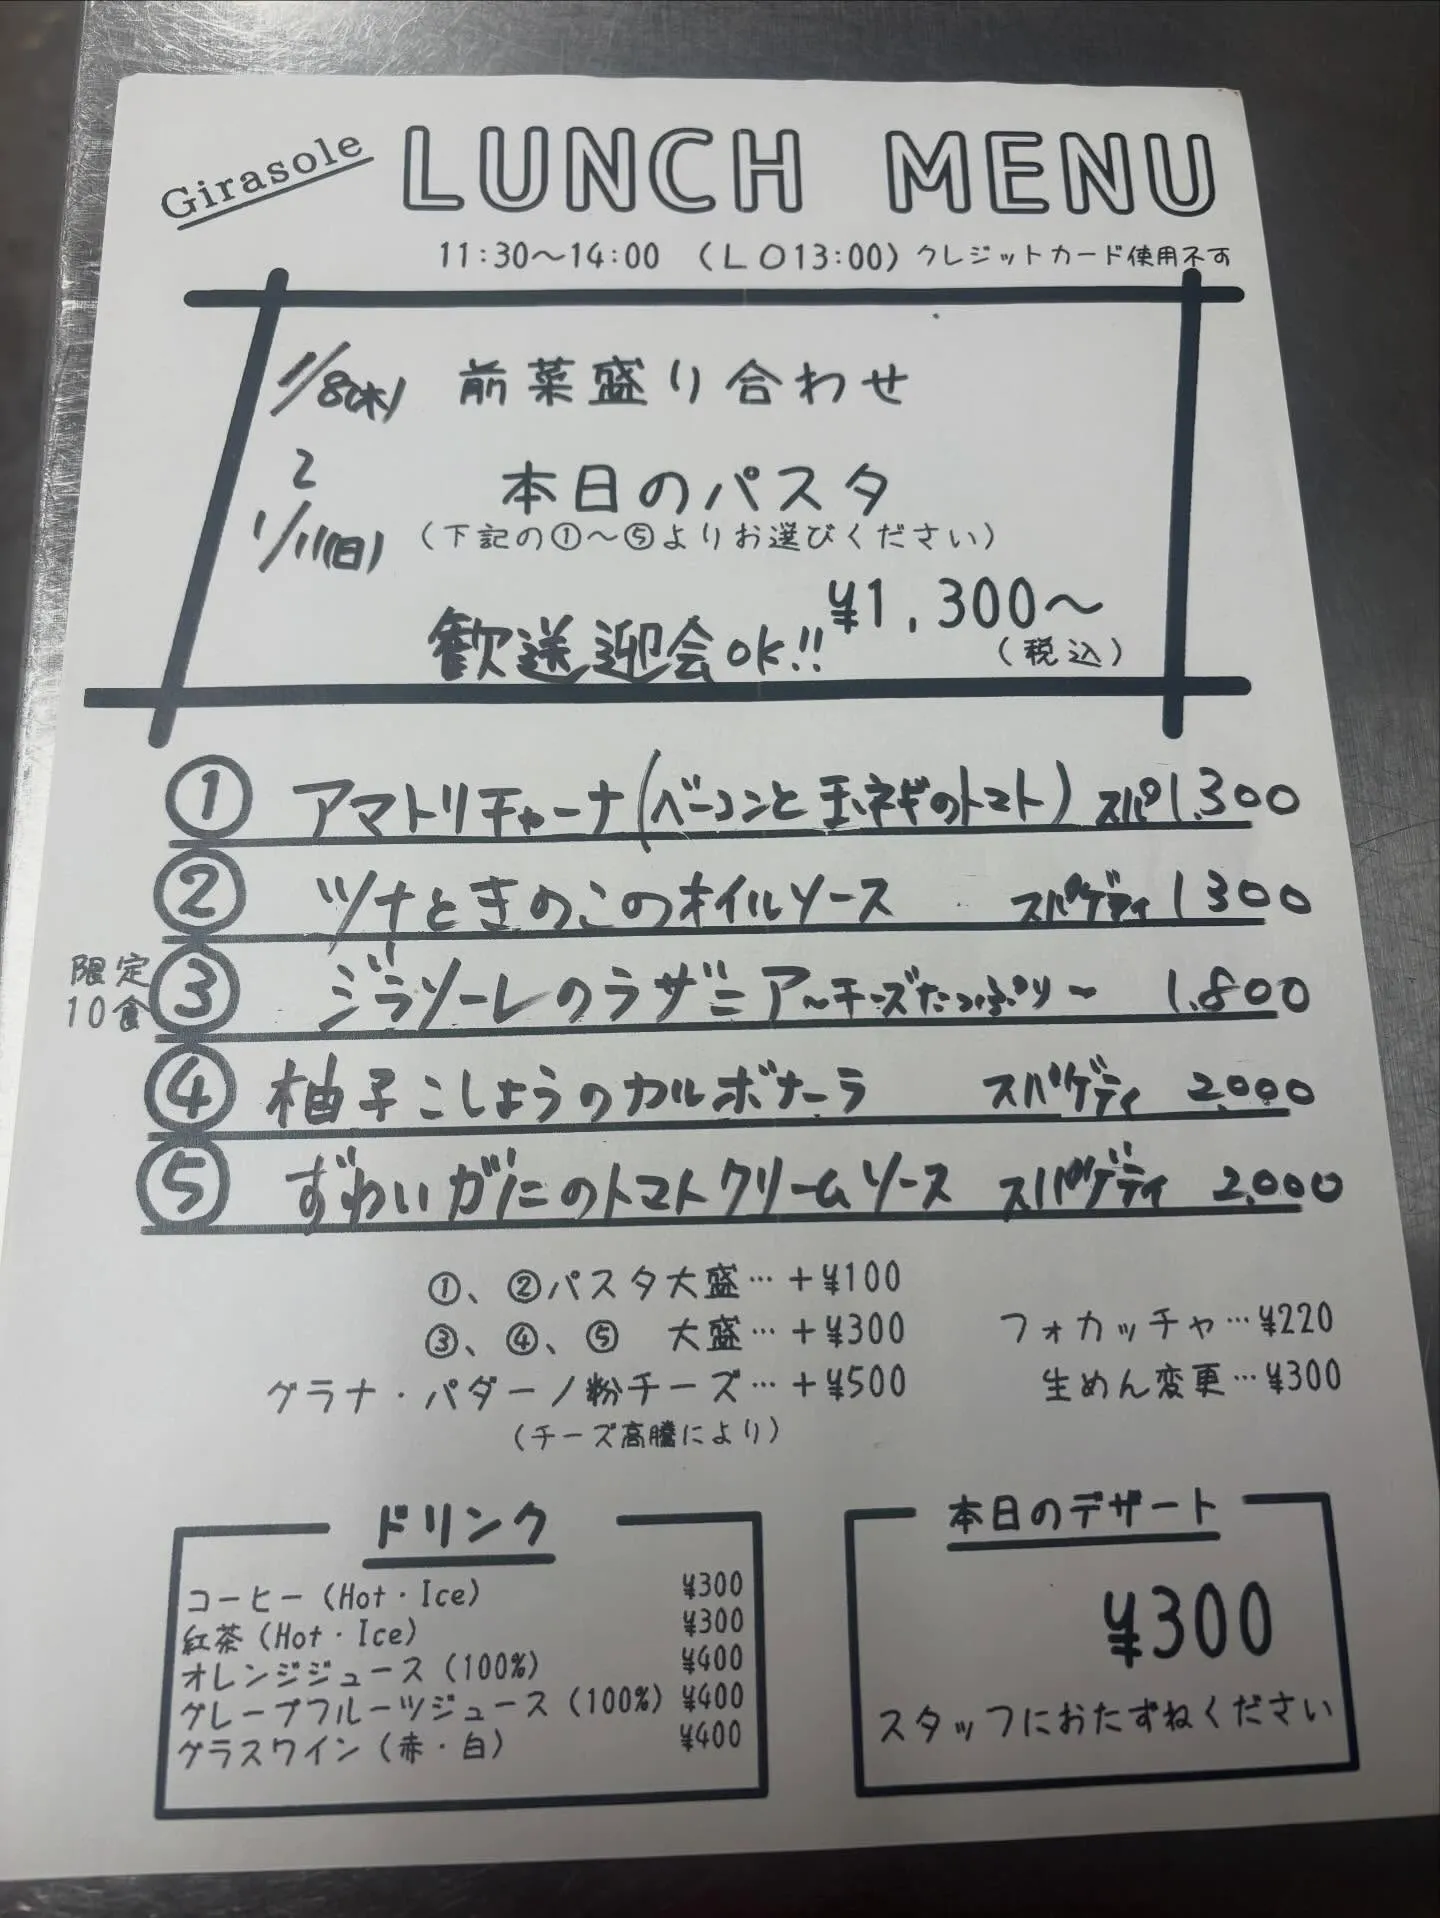 Girasole LUNCH MENU
11:30～14:00 （ＬＯ13:00）クレジットカード使用不可
1/8(木) 前菜盛り合わせ
2
本日のパスタ
1/11(日) （下記の①～⑤よりお選びください）
¥1,300～
歓送迎会OK!! （税込）
① アマトリチャーナ(ベーコンと玉ネギのトマト) スパ 1.300
② ツナときのこのオイルソース スパゲティ 1300
限定10食 ③ ジラソーレのラザニア～チーズたっぷり～ 1.800
④ 柚子こしょうのカルボナーラ スパゲティ 2.000
⑤ ずわいガニのトマトクリームソース スパゲティ 2.000
①、②パスタ大盛…＋¥100
③、④、⑤ 大盛…＋¥300
フォカッチャ…¥220
グラナ・パダーノ粉チーズ…＋¥500
生めん変更…¥300
（チーズ高騰により）
ドリンク
コーヒー（Hot・Ice） ¥300
紅茶（Hot・Ice） ¥300
オレンジジュース（100%） ¥400
グレープフルーツジュース（100%） ¥400
グラスワイン（赤・白） ¥400
本日のデザート
¥300
スタッフにおたずねください